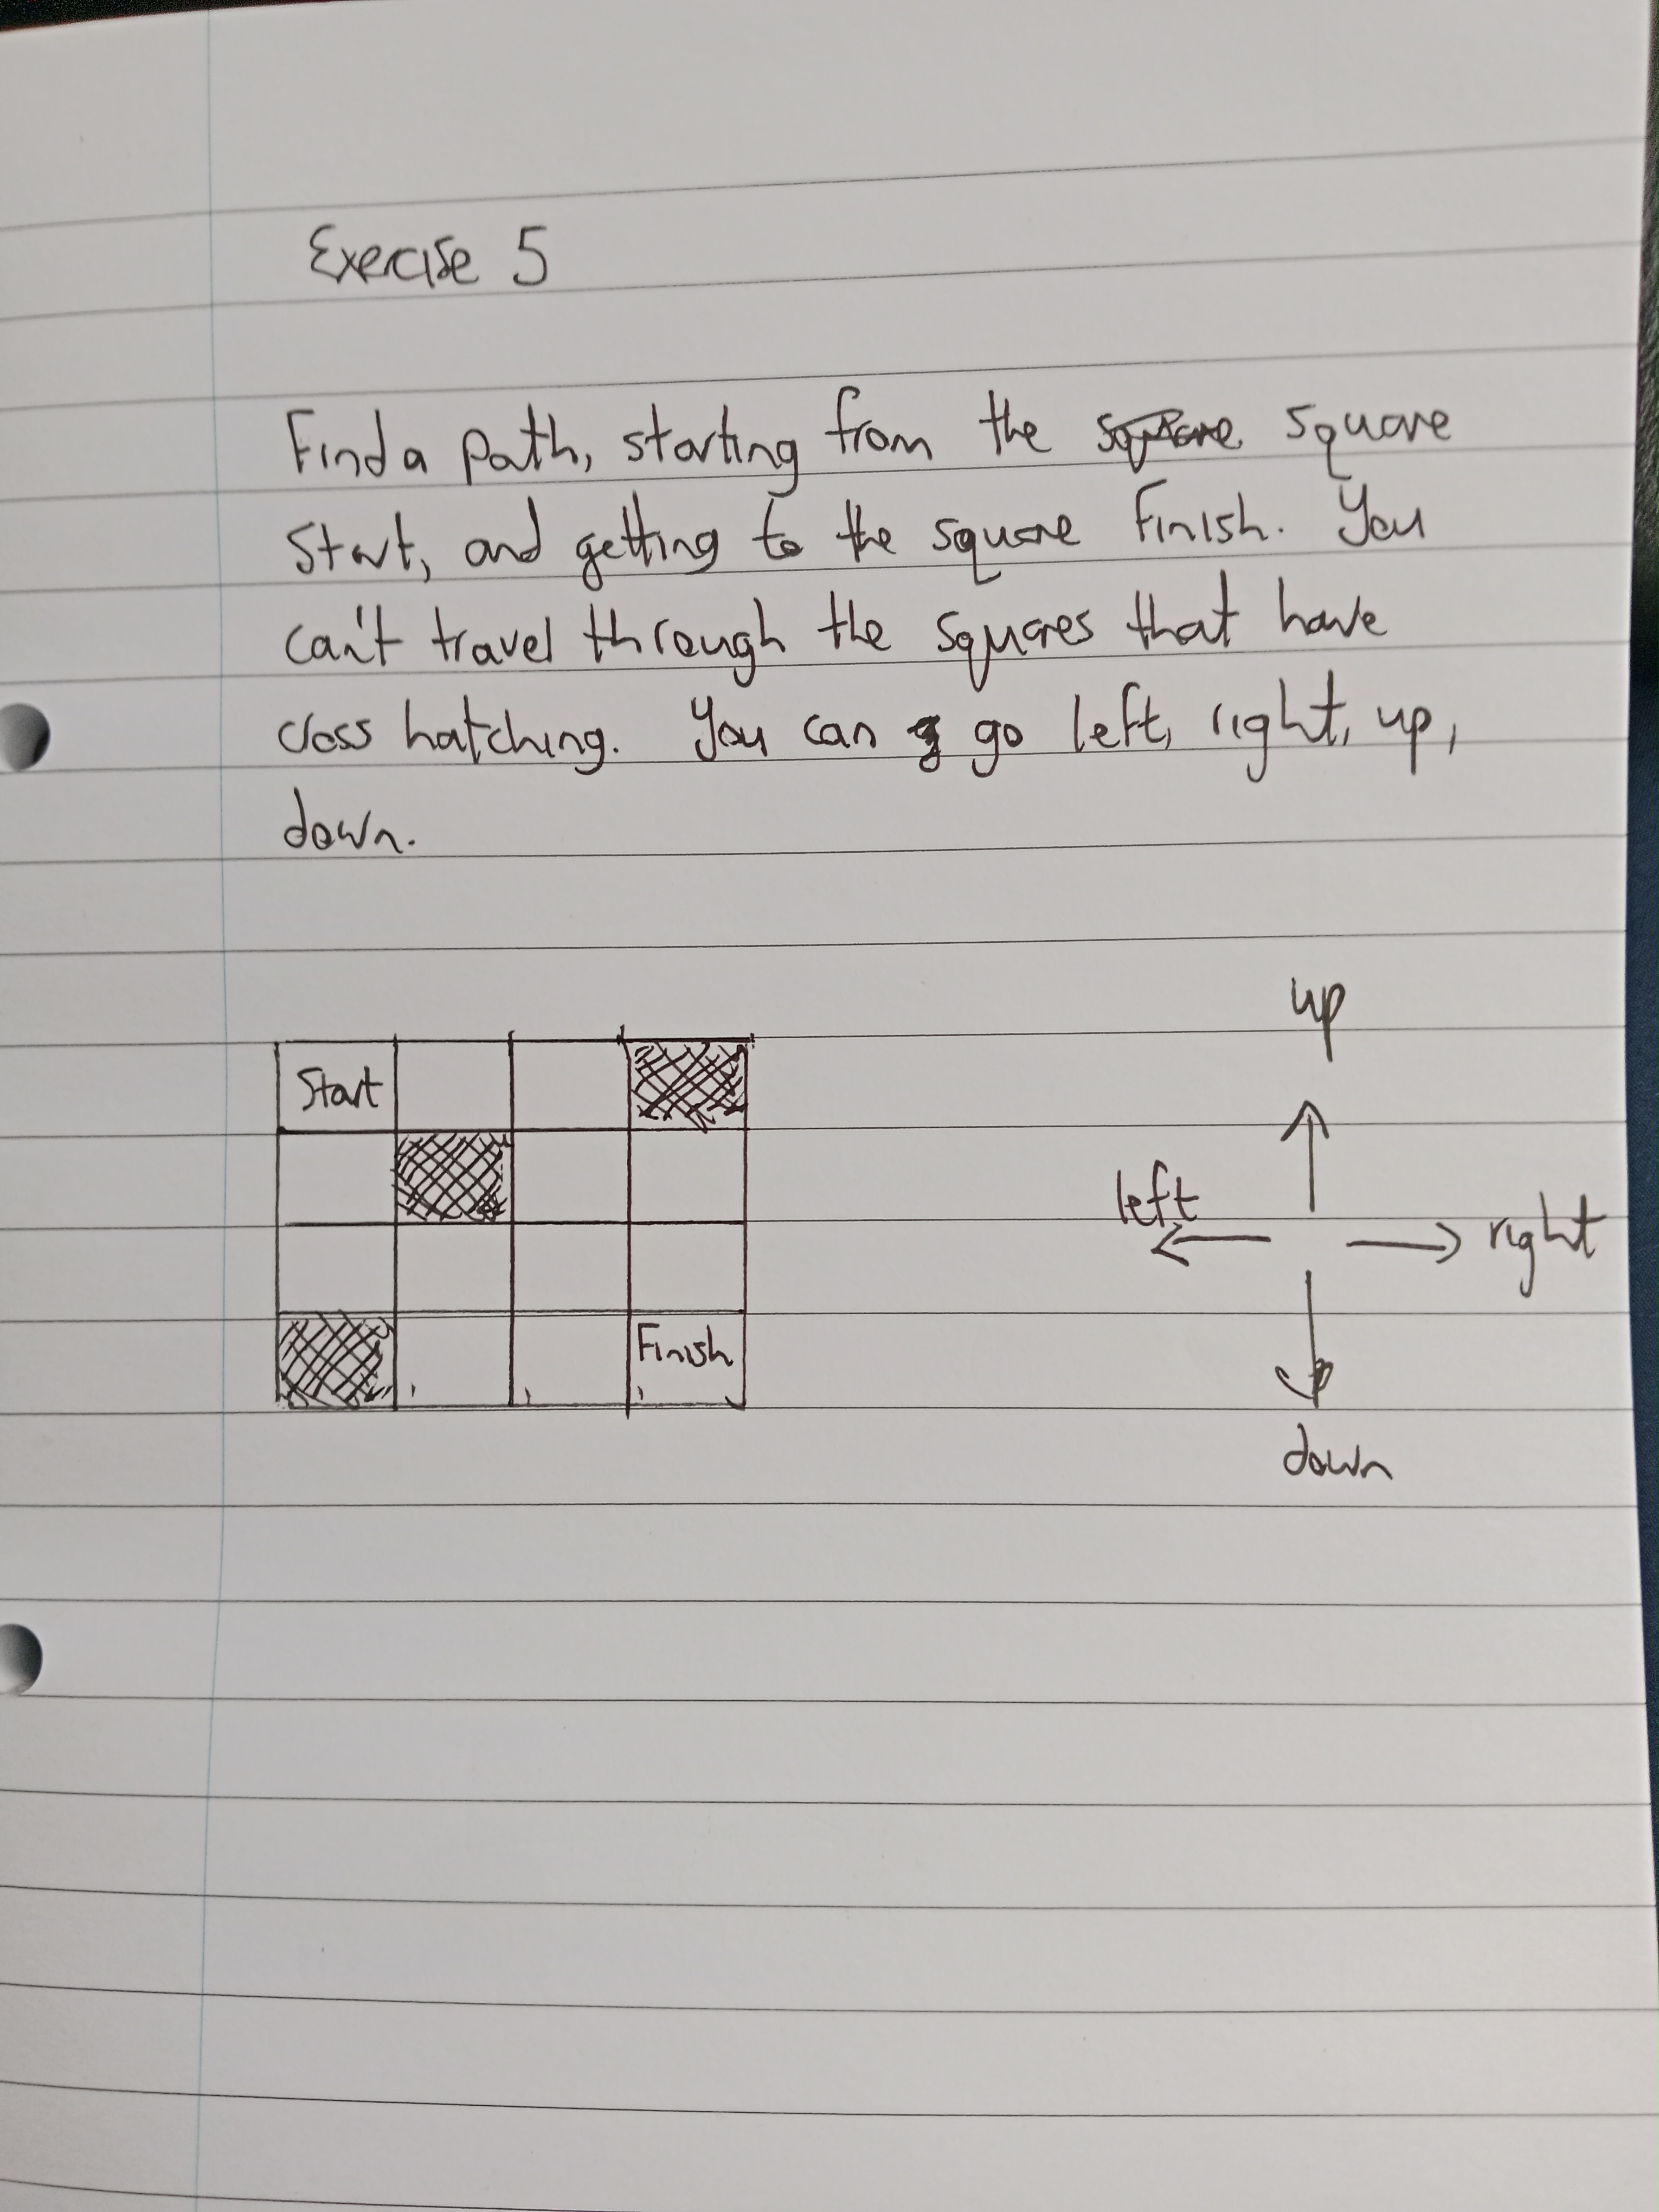 Exercise 5
Find a path, starting from the square square
Start, and getting to the square Finish. You
can't travel through the squares that have
closs hatching. You can g go left, right, up,
down.
up
Start
left
right
Finish
down